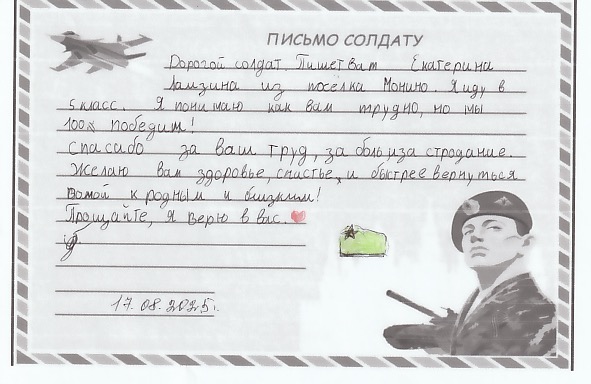 ПИСЬМО СОЛДАТУ
Дорогой солдат. Пишет вам Екатерина
Ламзина из посёлка Монино. Я иду в
5 класс. Я понимаю как вам трудно, но мы
100% победим!
Спасибо за ваш труд, за боль, за стродание.
Желаю вам здоровье, счастье, и быстрее вернуться
домой к родным и близким!
Прощайте, я верю в вас.
17.08.2025г.